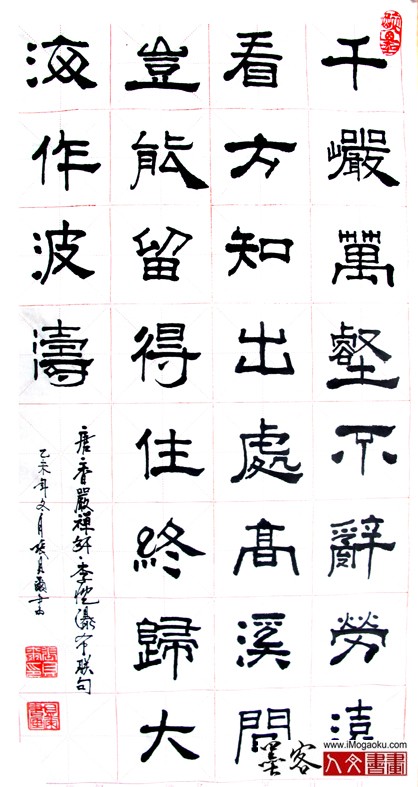 千巖萬壑不辭勞遠
看方知出處高溪間
豈能留得住終歸大
海作波濤
唐香嚴禪師李忱瀑布联句
乙未年冬月
墨客
www.iMogaoku.com
人文書畫